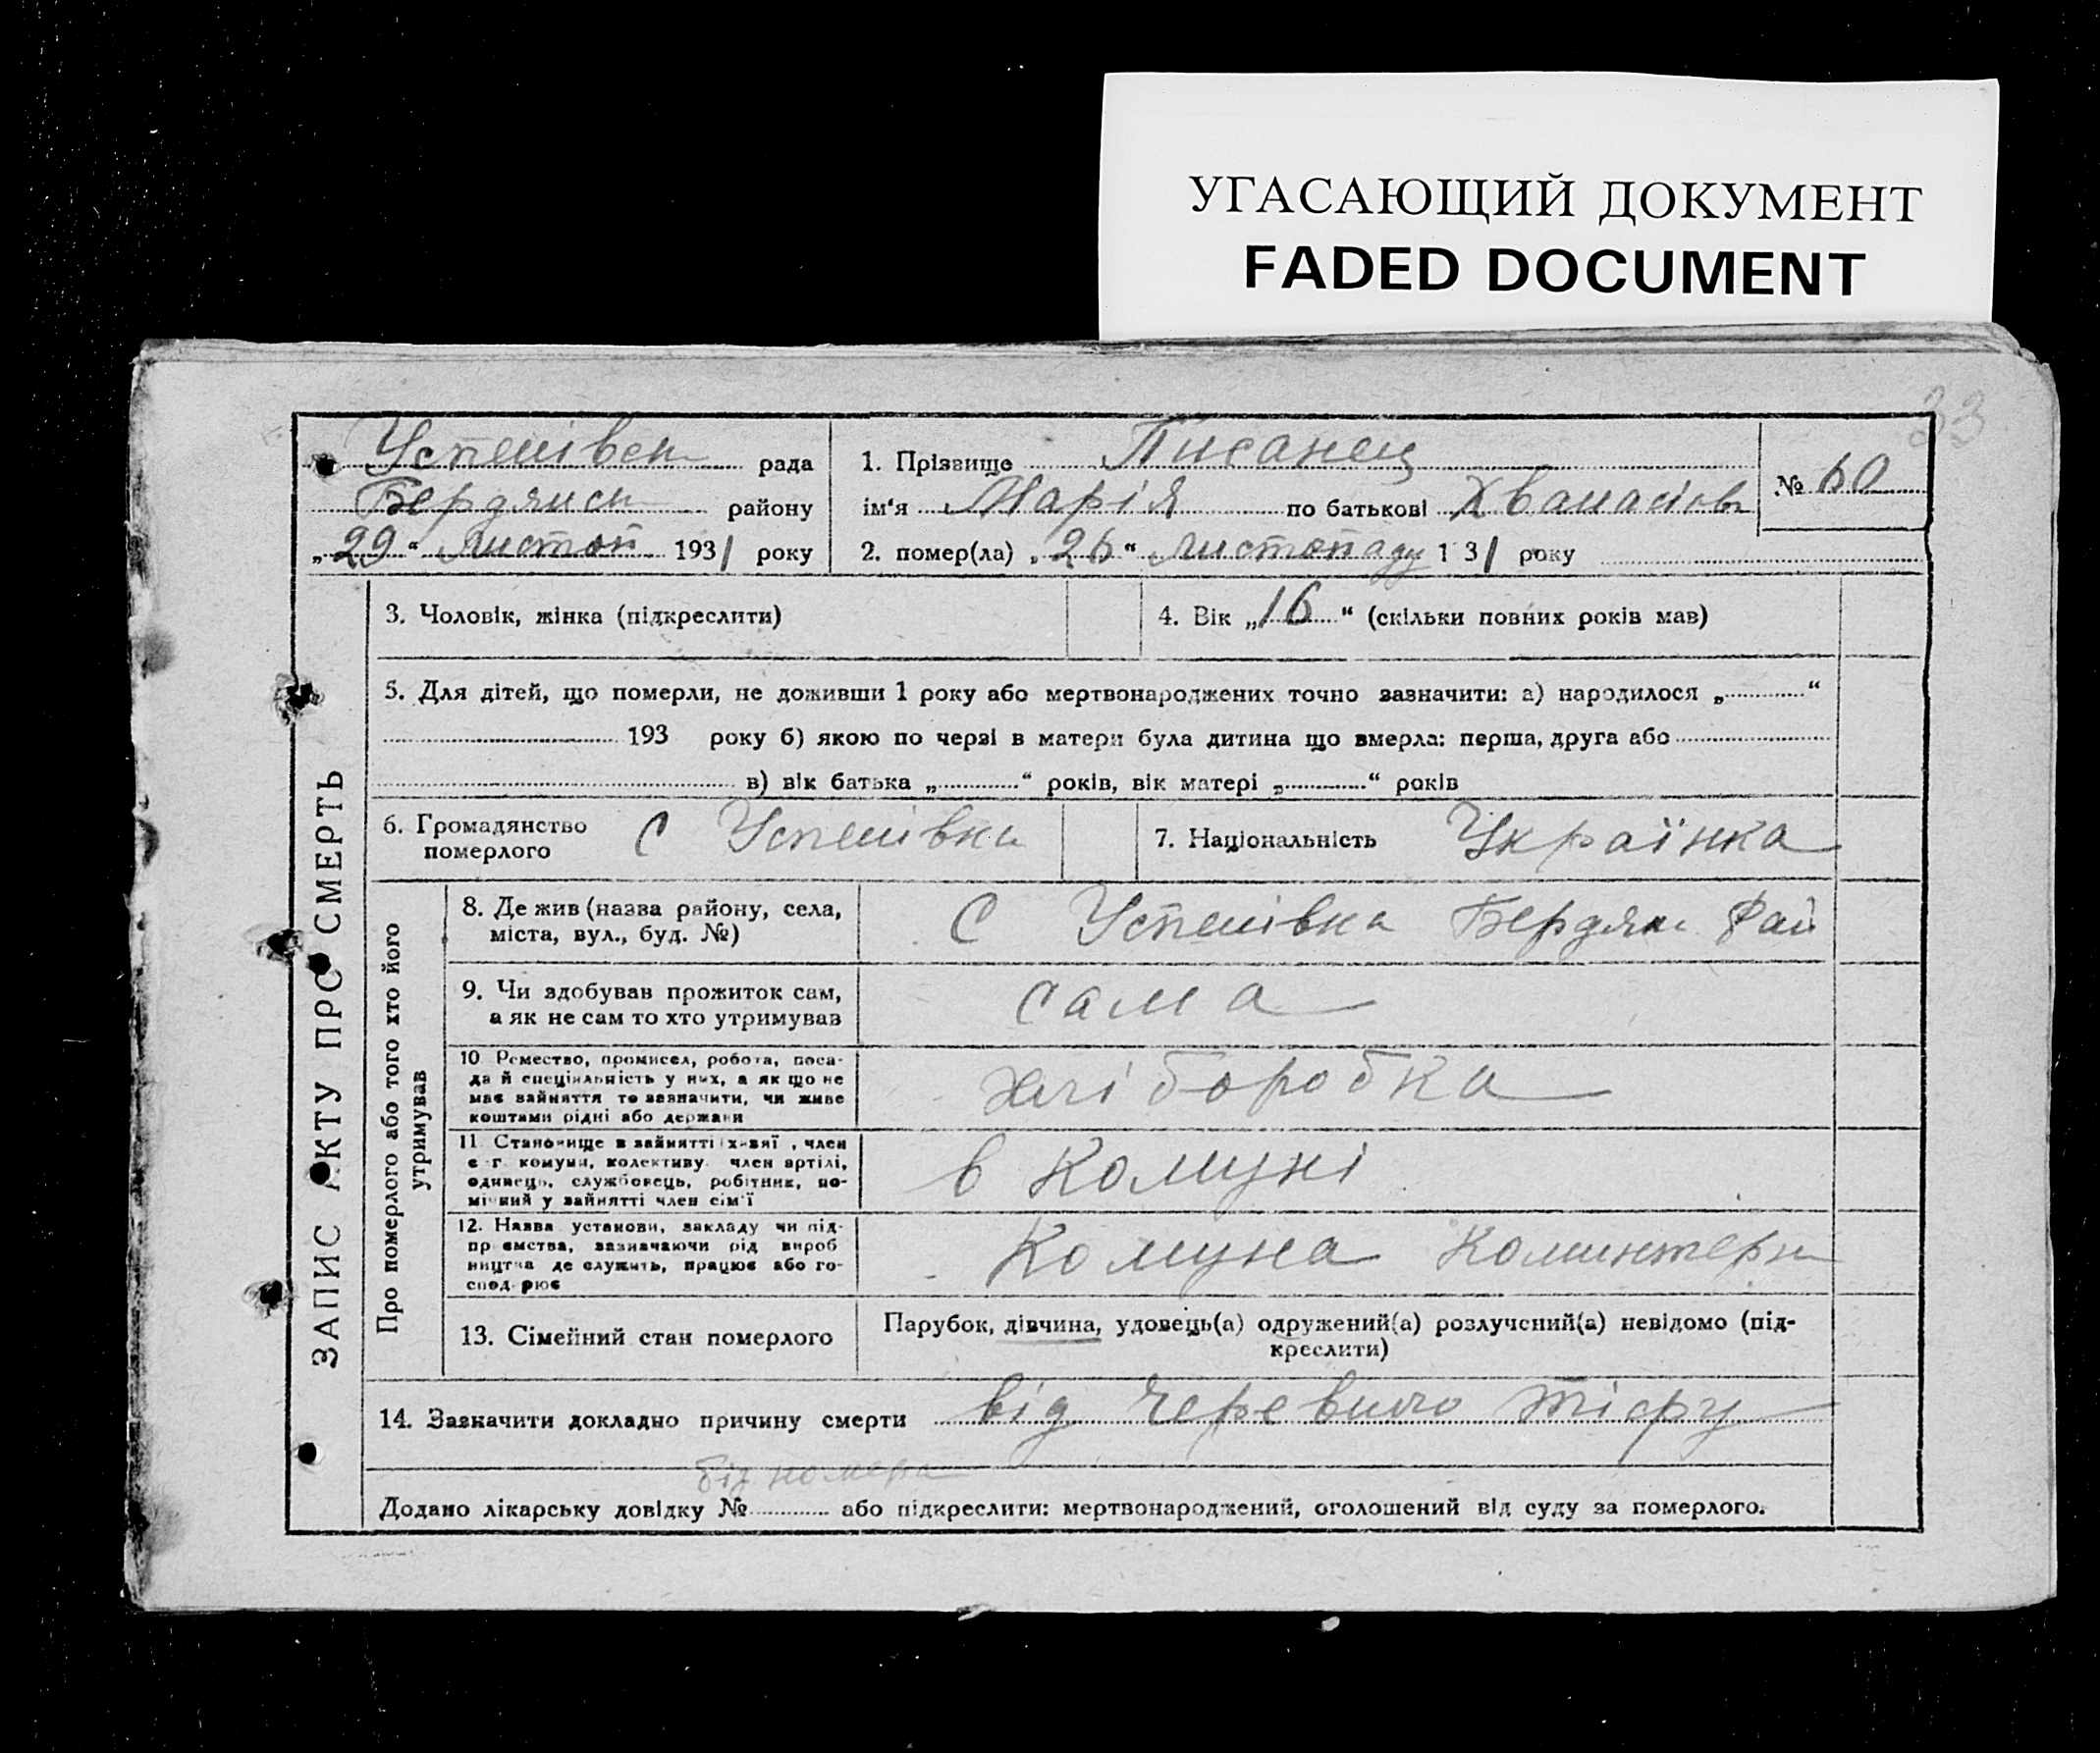 УГАСАЮЩИЙ ДОКУМЕНТ
FADED DOCUMENT
33
Успенівськ рада
Бердянськ району
„29“ Листоп 1931 року
1. Прізвище Писанец
ім'я Марія по батькові Хванасіов
№ 60
2. помер(ла) „26“ листопаду 1 31 року
ЗАПИС АКТУ ПРО СМЕРТЬ
3. Чоловік, жінка (підкреслити)
4. Вік „16“ (скільки повних років мав)
5. Для дітей, що померли, не доживши 1 року або мертвонароджених точно зазначити: а) народилося „ “
193 року б) якою по черзі в матери була дитина що вмерла: перша, друга або
в) вік батька „ “ років, вік матері „ “ років
6. Громадянство
померлого
С Успенівка
7. Національність Українка
Про померлого або того хто його
утримував
8. Де жив (назва району, села,
міста, вул., буд. №)
С Успенівка Бердян Рай
9. Чи здобував прожиток сам,
а як не сам то хто утримував
сама
10 Ремество, промисел, робота, поса-
да й спеціяльність у них, а як що не
має зайняття то зазначити, чи живе
коштами рідні або держави
хліборобка
11 Становище в зайнятті хазяї , член
с г. комуни, колективу член артілі,
одинець, службовець, робітник, по-
мічний у зайнятті член сім'ї
в Комуні
12. Назва установи, закладу чи під-
пр ємства, зазначаючи рід вироб
ництва де служить, працює або го-
спод рює
Комуна Коминтерн
13. Сімейний стан померлого
Парубок, дівчина, удовець(а) одружений(а) розлучений(а) невідомо (під-
креслити)
14. Зазначити докладно причину смерти від черевного тіфу
біз номера
Додано лікарську довідку № або підкреслити: мертвонароджений, оголошений від суду за померлого.